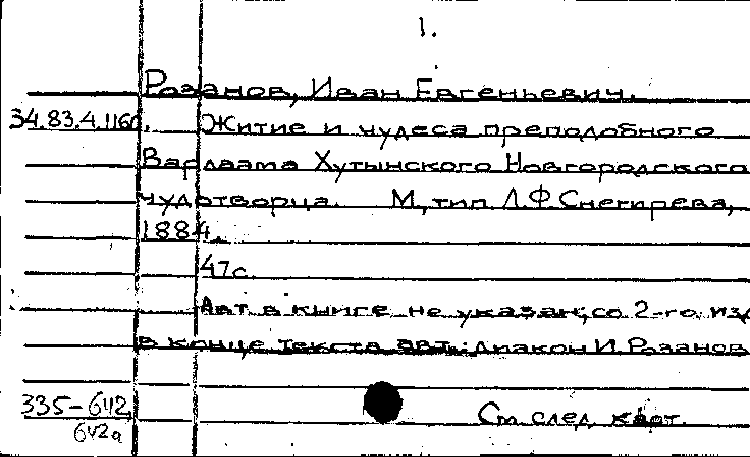 1.
Розанов, Иван Евгеньевич.
34.83.4.116б. Житие и чудеса преподобного
Варлаама Хутынского Новгородского
чудотворца. М, тип Л.Ф Снегирева,
1884.
47с.
Авт. в книге не указан; со 2-го изд
в конце текста авт.: диакон И. Розанов
335-642
642а
См. след. карт.